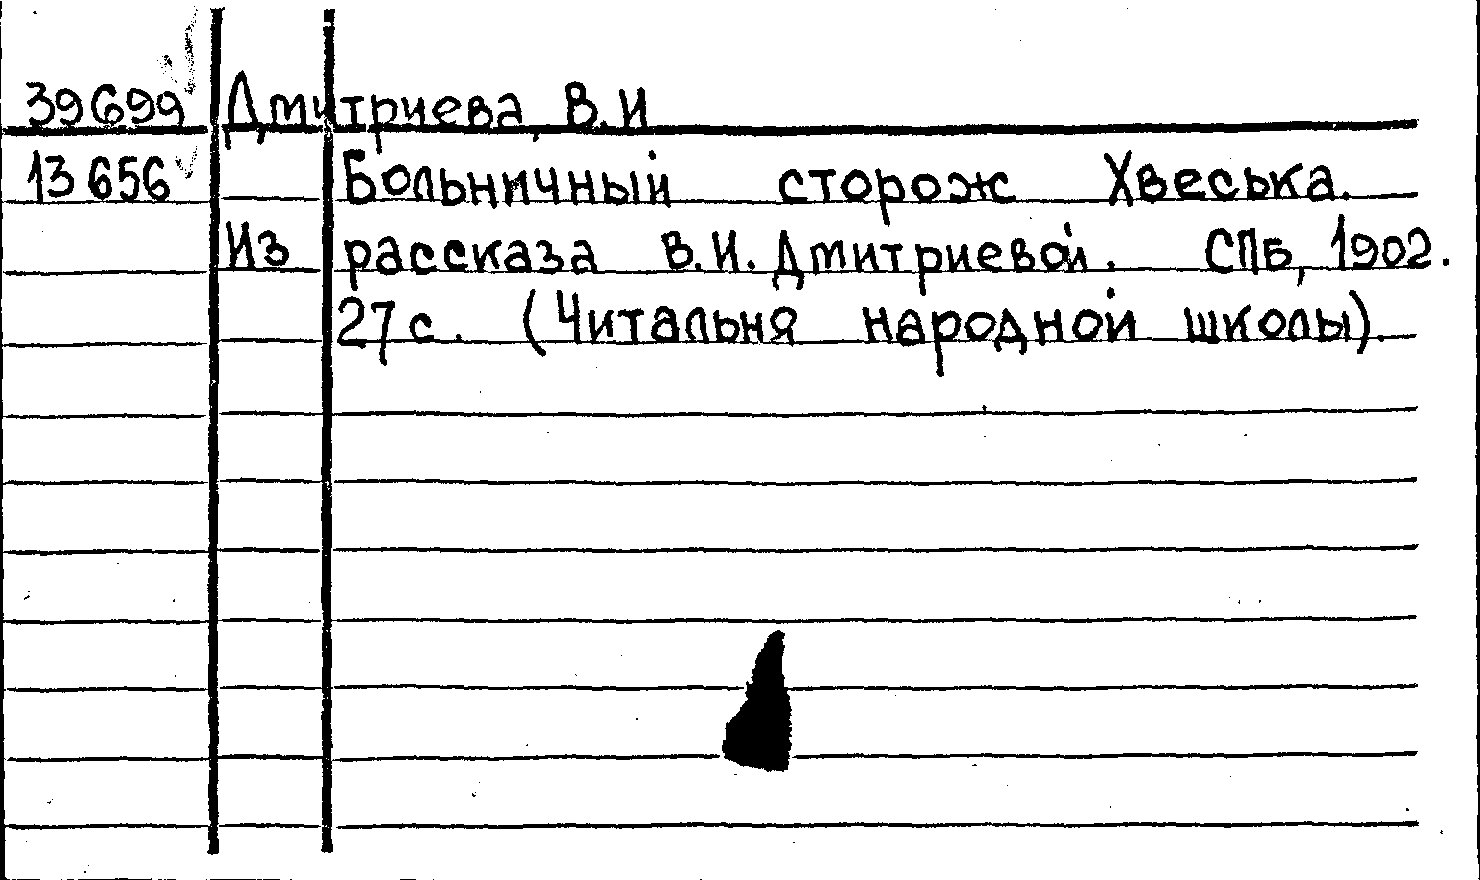 39699 Дмитриева, В.И
13656 Больничный сторож Хвеська.
Из рассказа В.И. Дмитриевой. СПБ, 1902.
27 с. (Читальня народной школы).